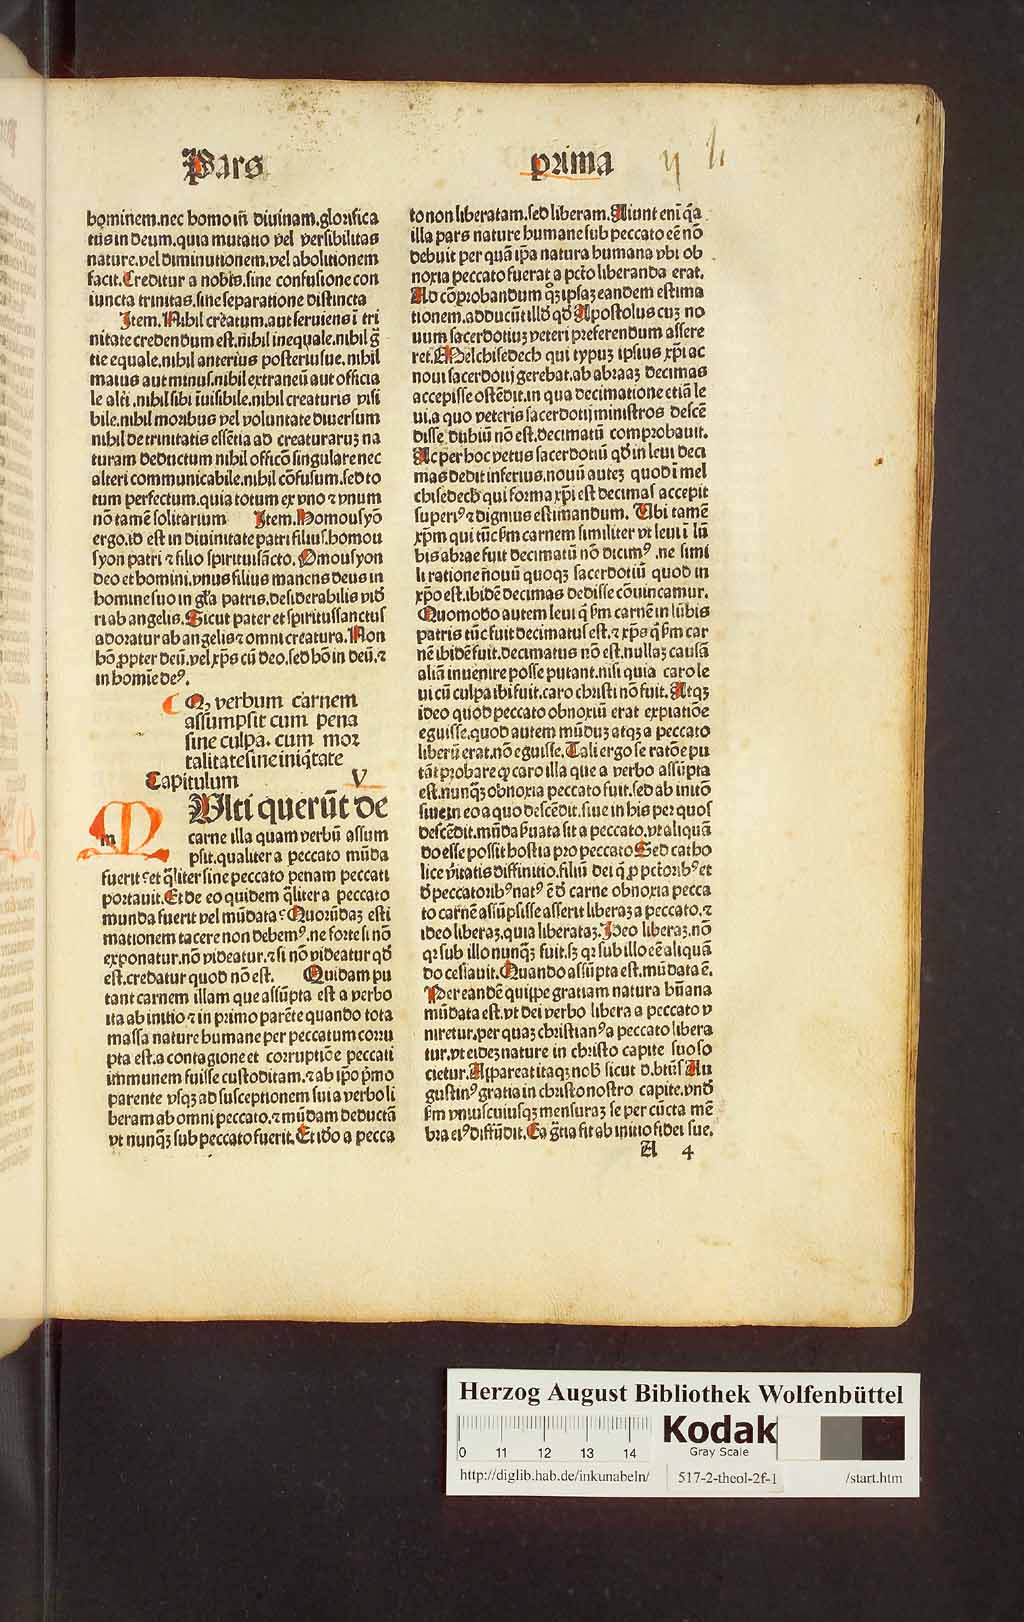 Pars prima
hominem.nec homo in̄ diuinam.glorifica
tus in deum.quia mutatio vel versibilitas
nature.vel diminutionem.vel abolitionem
facit.Creditur a nobis.sine confusione con
iuncta trinitas.sine separatione distincta
Item.Nihil creatum.aut seruiens ī tri
nitate credendum est.nihil inequale.nihil ḡ
tie equale.nihil anterius posteriusue.nihil
maius aut minus.nihil extraneū aut officia
le alt̄i.nihil sibi īuisibile.nihil creaturis visi
bile.nihil moribus vel voluntate diuersum
nihil de trinitatis essētia ad creaturaruꝫ na
turam deductum nihil officō singulare nec
alteri communicabile.nihil cōfusum.sed to
tum perfectum.quia totum ex vno ⁊ vnum
nō tamē solitarium Item.Homousyō
ergo.id est in diuinitate patri filius.homou
syon patri ⁊ filio spiritussācto.Omousyon
deo et homini.vnus filius manens deus in
homine suo in gl̄a patris.desiderabilis vid̄
ri ab angelis.Sicut pater et spiritussanctus
adoratur ab angelis ⁊ omni creatura.Non
hō ꝓpter deū.vel xp̄s cū deo.sed hō in deū.⁊
in homīe deꝰ.
Qꝫ verbum carnem
assumpsit cum pena
sine culpa. cum mor
talitate sine iniq̄tate
Capitulum V
m MUlti querūt de
carne illa quam verbū assum
psit.qualiter a peccato mūda
fuerit et q̄liter sine peccato penam peccati
portauit.Et de eo quidem q̄liter a peccato
munda fuerit vel mūdata Quorūdaꝫ esti
mationem tacere non debemꝰ.ne forte si nō
exponatur.nō videatur.⁊ si nō videatur qd̄
est.credatur quod nō est. Quidam pu
tant carnem illam que assūpta est a verbo
ita ab initio ⁊ in primo parēte quando tota
massa nature humane per peccatum corru
pta est.a contagione et corruptiōe peccati
immunem fuisse custoditam.⁊ ab ip̄o p̄mo
parente vsqꝫ ad susceptionem sui a verbo li
beram ab omni peccato.⁊ mūdam deductā
vt nunqꝫ sub peccato fuerit.Et iđo a pecca
to non liberatam.sed liberam.Aiunt eni q̄a
illa pars nature humane sub peccato eē nō
debuit per quā ip̄a natura humana vbi ob
noxia peccato fuerat a pctō liberanda erat.
Ad cōprobandum qꝫ ipsaꝫ eandem estima
tionem.adducūt illđ qđ Apostolus cuꝫ no
uum sacerdotiuꝫ veteri preferendum assere
ret.Melchisedech qui typuꝫ ipsius xp̄i ac
noui sacerdotij gerebat.ab abraaꝫ decimas
accepisse ostēdit.in qua decimatione etiā le
ui.a quo veteris sacerdotij ministros descē
disse dubiū nō est.decimatū comprobauit.
Ac per hoc vetus sacerdotiū qđ in leui deci
mas dedit inferius.nouū auteꝫ quod ī mel
chisedech qui forma xp̄i est decimas accepit
superiꝰ ⁊ dignius estimandum. Ubi tamē
xp̄m qui tūc s̄m carnem similiter vt leui ī lū
bis abrae fuit decimatū nō dicimꝰ.ne simi
li ratione nouū quoqꝫ sacerdotiū quod in
xp̄o est.ibidē decimas dedisse cōuincamur.
Quomodo autem leui q̄ s̄m carnē in lūbis
patris tūc fuit decimatus est.⁊ xp̄s q̄ s̄m car
nē ibidē fuit.decimatus nō est.nullaꝫ causā
aliā inuenire posse putant.nisi quia caro le
ui cū culpa ibi fuit.caro christi nō fuit.Atqꝫ
ideo quod peccato obnoxiū erat expiatiōe
eguisse.quod autem mūduꝫ atqꝫ a peccato
liberū erat.nō eguisse.Tali ergo se ratōe pu
tāt probare ꝙ caro illa que a verbo assūpta
est.nunqꝫ obnoxia peccato fuit.sed ab initō
siue in eo a quo descēdit.siue in his per quos
descēdit.mūda seruata sit a peccato.vt aliquā
do esse possit hostia pro peccato Sed catho
lice v̄itatis diffinitio.filiū dei q̄ ꝓ pctōribꝰ et
đ peccatoribꝰ natꝰ ē đ carne obnoxia pecca
to carnē assūpsisse asserit liberaꝫ a peccato.⁊
ideo liberaꝫ.quia liberataꝫ.Ideo liberaꝫ.nō
qꝛ sub illo nunqꝫ fuit.sꝫ qꝛ sub illo eē aliquā
do cessauit.Quando assūpta est.mūdata ē.
Per eandē quippe gratiam natura hūana
mūdata est.vt dei verbo libera a peccato v
niretur.per quaꝫ christianꝰ a peccato libera
tur.vt eideꝫ nature in christo capite suo so
cietur.Appareat itaqꝫ nob̄ sicut d.btūs Au
gustinꝰ gratia in christo nostro capite.vnđ
s̄m vniuscuiusqꝫ mensuraꝫ se per cūcta mē
bra eiꝰ diffūdit.Ea gr̄tia fit ab initio fidei sue.
A 4
Herzog August Bibliothek Wolfenbüttel
0 11 12 13 14
Kodak
Gray Scale
http://diglib.hab.de/inkunabeln/ 517-2-theol-2f-1 /start.htm